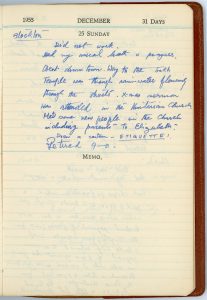 1955 DECEMBER 31 DAYS
25 SUNDAY
Stockton
Did not work
Had my usual bath & prayer
Went down town way to the Sikh
Temple was though rain-water flowing
through the streets. X-mas sermon
was attended, in the Unitarian Church
Met some new people in the Church
including parents to Elizabeth.
ETIQUETTE!
Retired 9-0.
MEMO.